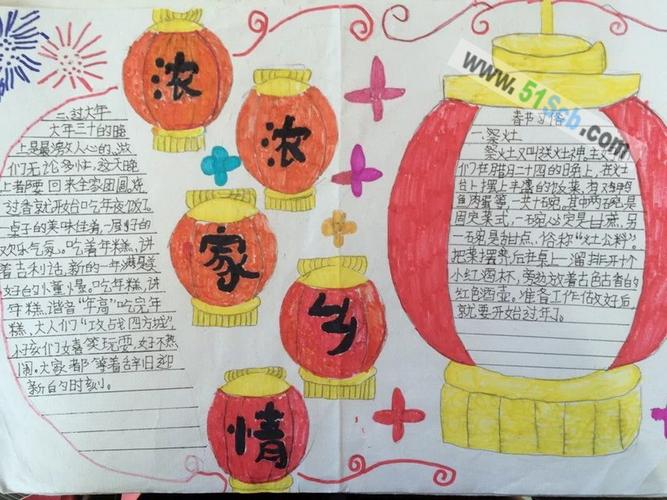 三、过大年
大年三十的晚
上是最激动人心的,游
们无论多忙,这天晚
上都要回来全家团圆,晚
过香就开始吃年夜饭了,
桌子的美味佳肴,一屋子的
欢乐气氛。吃着年糕、讲
着吉利话,新的一年满是美
好的小董小景。吃年糕,讲
年糕,谐音“年高”吃完年
糕,大人们“攻占四方城”,
小孩们嬉笑玩耍,好不热
闹。大家都等着辞旧迎
新的时刻。
浓
浓
家
乡
情
www.51Scb.com
春节习俗
一、祭灶
祭灶又叫送灶神。主
们在腊月二十四的日各上,在灶
台上摆上丰盛的饭菜,有鸡鸭
鱼肉蛋等,一共十碗,其中两碗是
固定菜式,一碗必定是甘蔗,另
一碗是甜点,俗称“灶公料”。
把菜摆齐后在桌上一溜排开十个
小红酒杯,旁边放着古色古香的
红色酒壶。准备工作做好后,
就要开始过年了。